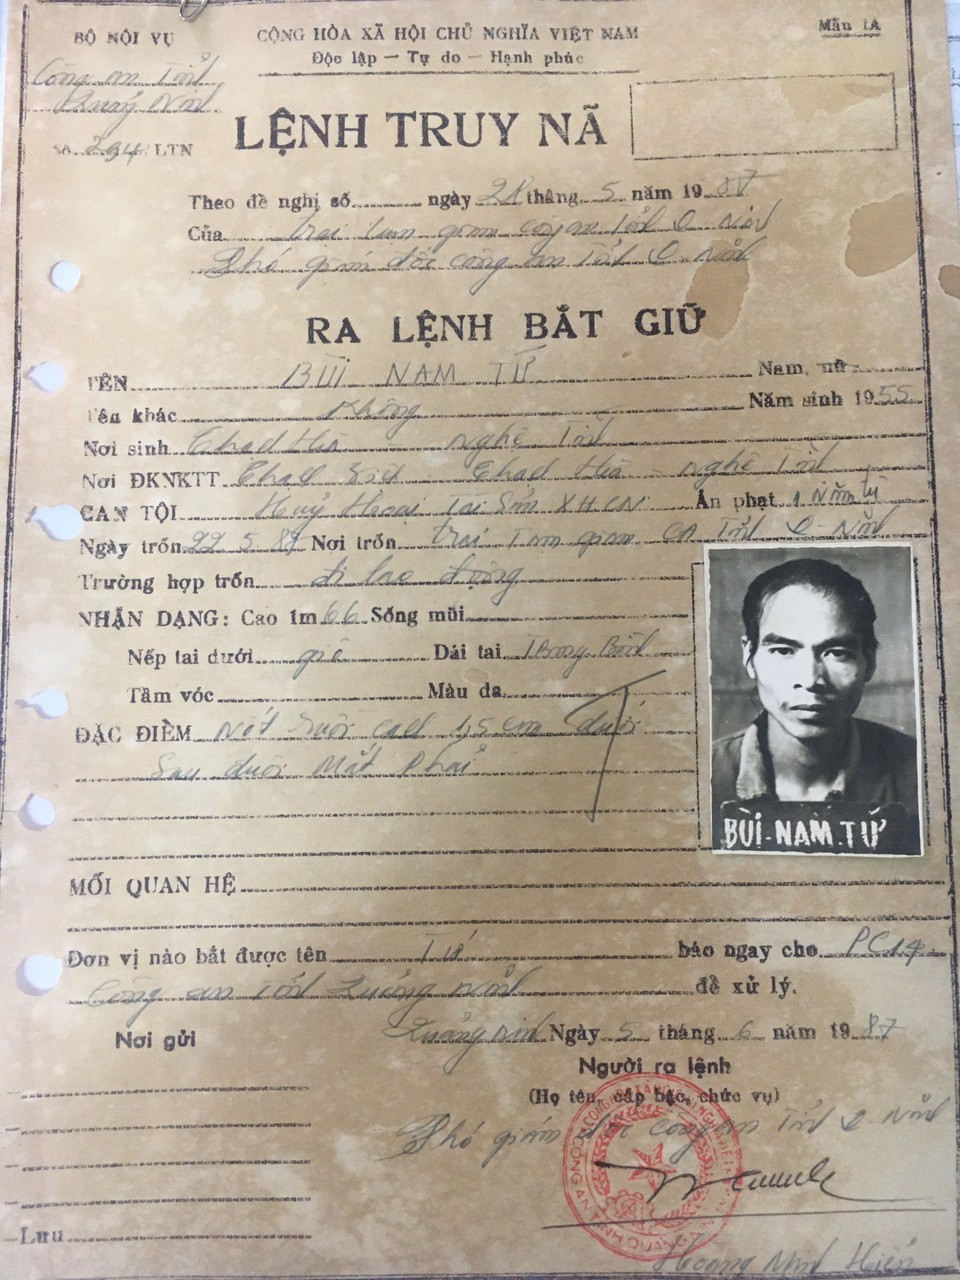 BỘ NỘI VỤ
CỘNG HÒA XÃ HỘI CHỦ NGHĨA VIỆT NAM
Mẫu 1A
Độc lập — Tự do — Hạnh phúc
Công an Tỉnh
Quảng Ninh
Số 294/LTN
LỆNH TRUY NÃ
Theo đề nghị số ngày 28 tháng 5 năm 1987
Của trại tạm giam công an Tỉnh Q. Ninh
Phó giám đốc công an Tỉnh Q. Ninh
RA LỆNH BẮT GIỮ
TÊN BÙI NAM TỨ Nam, nữ
Tên khác Không Năm sinh 1955
Nơi sinh Hoà - Nghệ Tĩnh
Nơi ĐKNKTT Hoà - Nghệ Tĩnh
CAN TỘI Huỷ Hoại Tài Sản XHCN Án phạt 1 Năm tù
Ngày trốn 22.5.87 Nơi trốn trại Tạm giam CA Tỉnh Q. Ninh
Trường hợp trốn đi lao động
NHẬN DẠNG: Cao 1m66 Sống mũi
Nếp tai dưới Dái tai Trung Bình
Tầm vóc Màu da
ĐẶC ĐIỂM Nốt Ruồi 1,5cm dưới
Sau đuôi Mắt Phải
BÙI-NAM.TỨ
MỐI QUAN HỆ
Đơn vị nào bắt được tên Tứ báo ngay cho PC14
Công an Tỉnh Quảng Ninh để xử lý.
Nơi gửi
Quảng Ninh Ngày 5 tháng 6 năm 1987
Người ra lệnh
(Họ tên, cấp bậc, chức vụ)
Phó giám đốc công an Tỉnh Q. Ninh
Lưu
CÔNG AN TỈNH QUẢNG NINH
Hoàng Minh